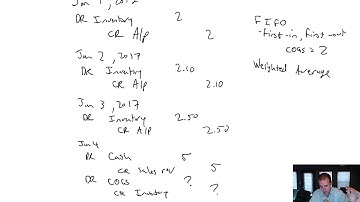 Jan 1, 2017
DR Inventory 2
CR A/p 2
Jan 2, 2017
DR Inventory 2.10
CR A/p 2.10
Jan 3, 2017
DR Inventory 2.50
CR A/p 2.50
Jan 4
DR Cash 5
CR Sales rev 5
DR COGS ?
CR Inventory ?
FIFO
-First-in, first-out
COGS = 2
Weighted Average